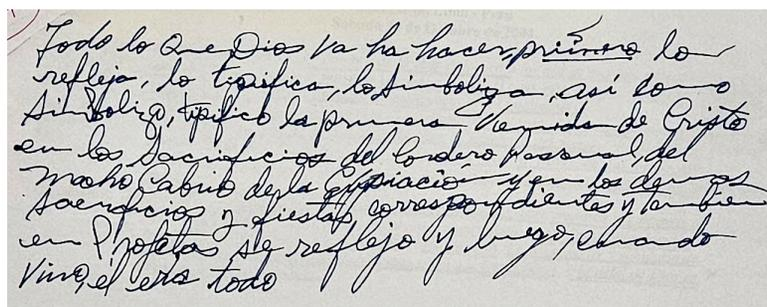 Todo lo que Dios va ha hacer primero lo
refleja, lo tipifica, lo simboliza, así como
simbolizo, tipifico la primera Venida de Cristo
en los sacrificios del Cordero Pascual, del
macho Cabrio de la Expiación y en los demas
sacrificios y fiestas correspondientes y tambien
en Profetas se reflejo y luego, cuando
vino, él era todo